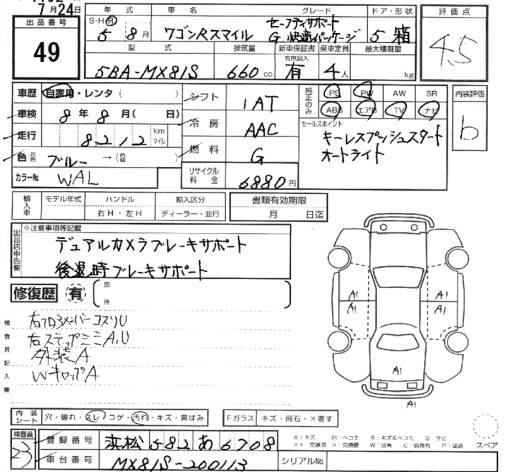 7月24日
出品番号
49
S・H・R 年式 車名 グレード ドア・形状
5 8月 ワゴンRスマイル セーフティサポート
G 快適パッケージ 5 箱
型式 排気量 新車保証書 有無記入 乗車定員 最大積載量
5BA-MX81S 660cc 有 4人 kg
評価点
4.5
車歴 自家用・レンタ( )
車検 8年8月( 日)
走行 8212 km マイル
色 元色 ブルー →(色替 )
カラーNo WAL
シフト 1AT
冷房 AAC
燃料 G
リサイクル料金 6880円
純正のみ PS PW AW SR
ABS エアB TV ナビ
セールスポイント
キーレスプッシュスタート
オートライト
内装評価
b
輸入車 モデル年式 ハンドル 輸入区分
年 右H・左H ディーラー・並行
書類有効期限
月 日迄
出品店申告欄
※注意事項等記載
デュアルカメラブレーキサポート
後退時ブレーキサポート
修復歴 有 箇所
検査員記入欄
右ステップミニA,U
外装A
WキャップA
A1
A1 A1 A1
A1
内装シート 穴・破れ・スレ・コゲ・汚れ・キズ・黄ばみ
Fガラス キズ・飛石・×要す
検査員
23
登録番号 浜松 582 あ 6708
車台番号 MX81S-200113
シリアルNo
A:キズ M:ヘコミ B:キズ&ヘコミ S:サビ
スペア